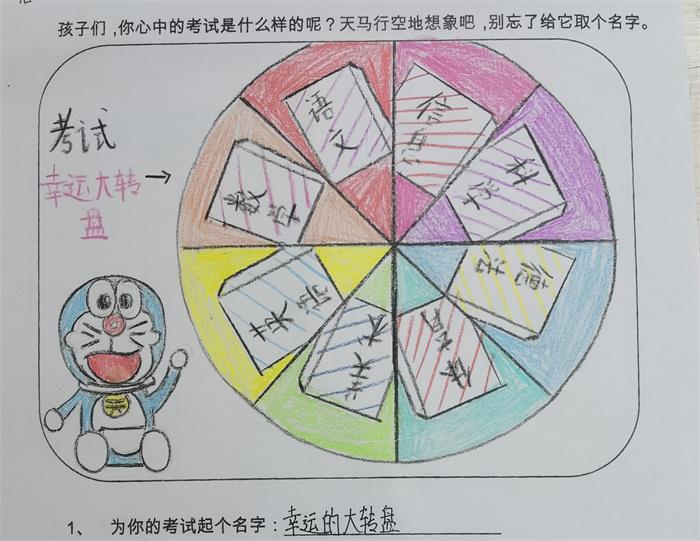 孩子们,你心中的考试是什么样的呢?天马行空地想象吧,别忘了给它取个名字。
考试
幸运大转
盘
语文
信息
科学
道法
体育
美术
音乐
数学
1、 为你的考试起个名字:幸运的大转盘